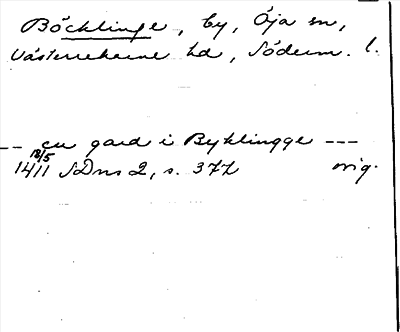 Böcklinge, by, Öja sn,
Västerrekarne hd, Söderm. l.
-- en gard i Byklingge ---
18/5
1411 SDns 2, s. 377 orig.